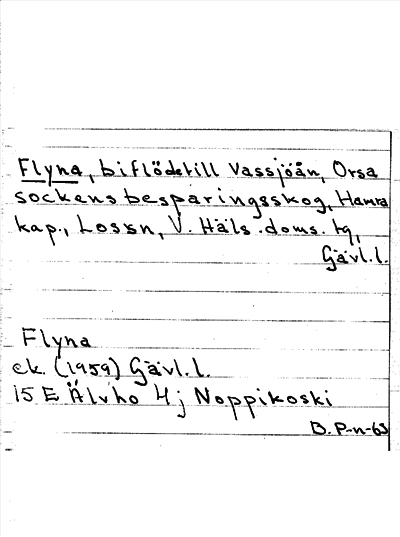 Flyna, biflöde till Vassjöån, Orsa
sockens besparingsskog, Hamra
kap., Lossn, V. Häls. doms. tg,
Gävl.l.
Flyna
ek. (1959) Gävl.l.
15 E Älvho 4j Noppikoski
B. P-n-63